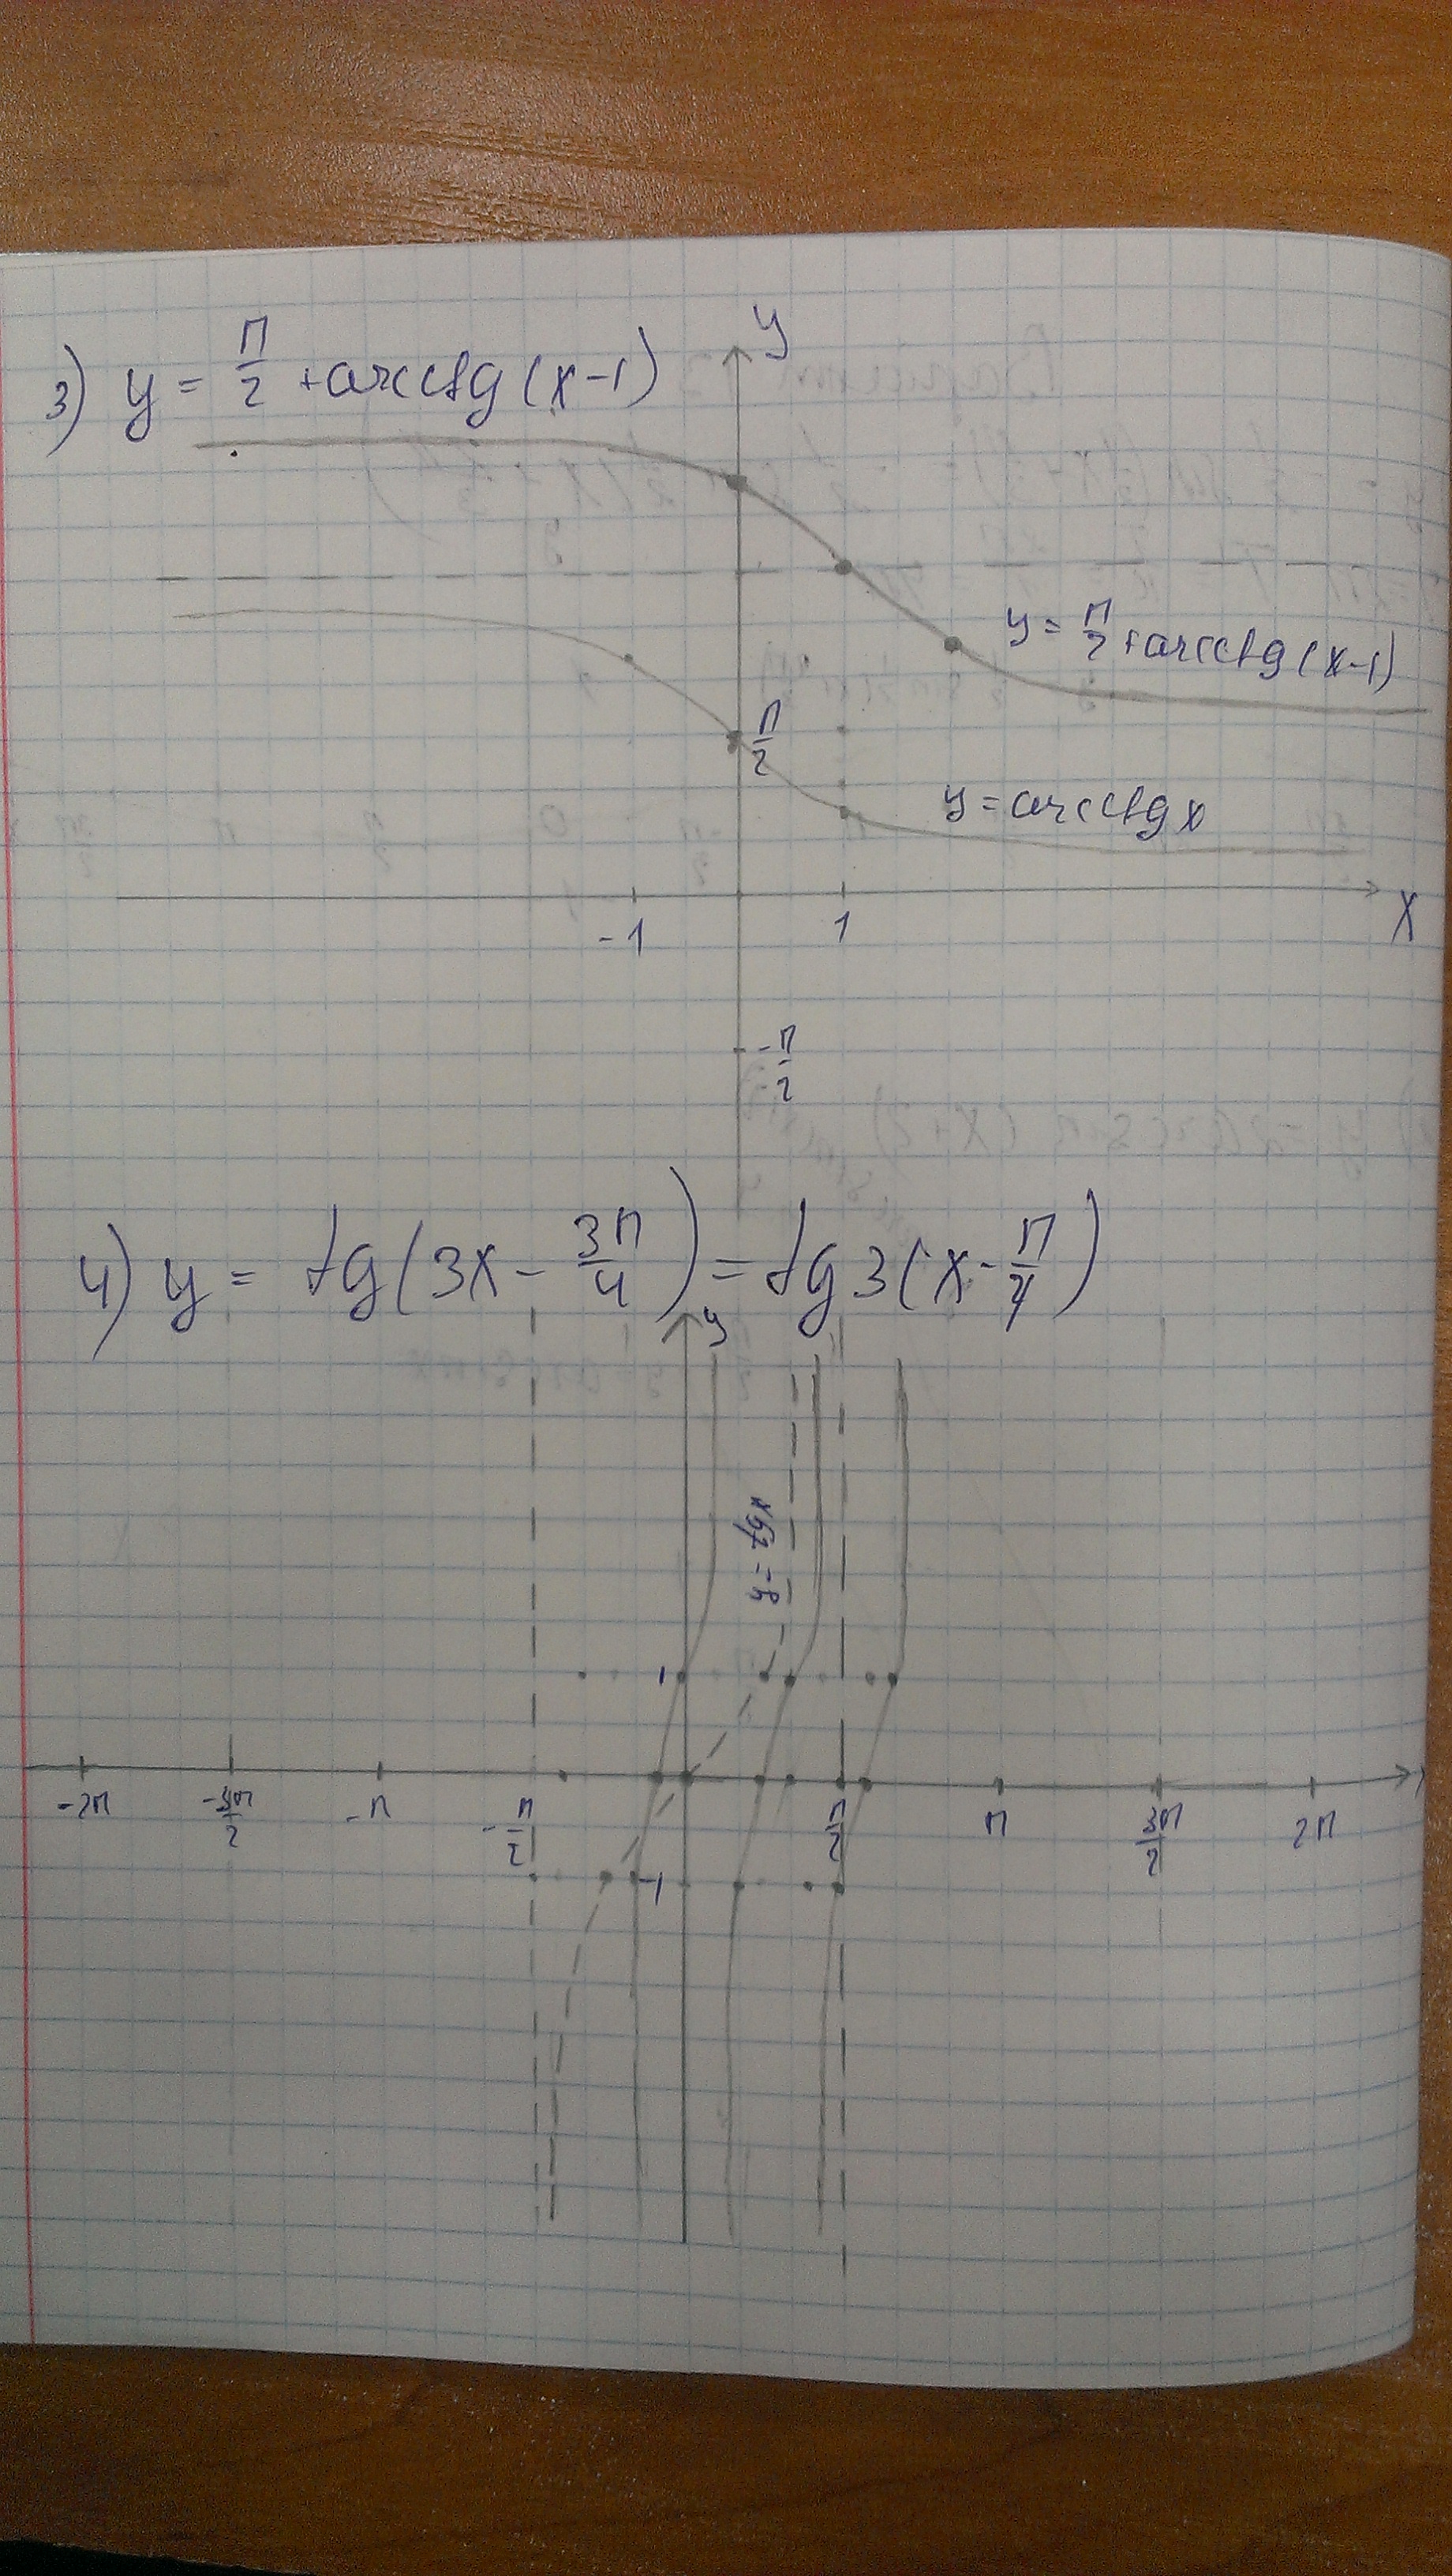 3) y = π/2 + arcctg(x-1)
y
y = π/2 + arcctg(x-1)
π/2
y = arcctg x
-1 1 x
-π/2
4) y = tg(3x - 3π/4) = tg 3(x - π/4)
y
y = tg x
1
-2π -3π/2 -π -π/2 π/2 π 3π/2 2π
-1